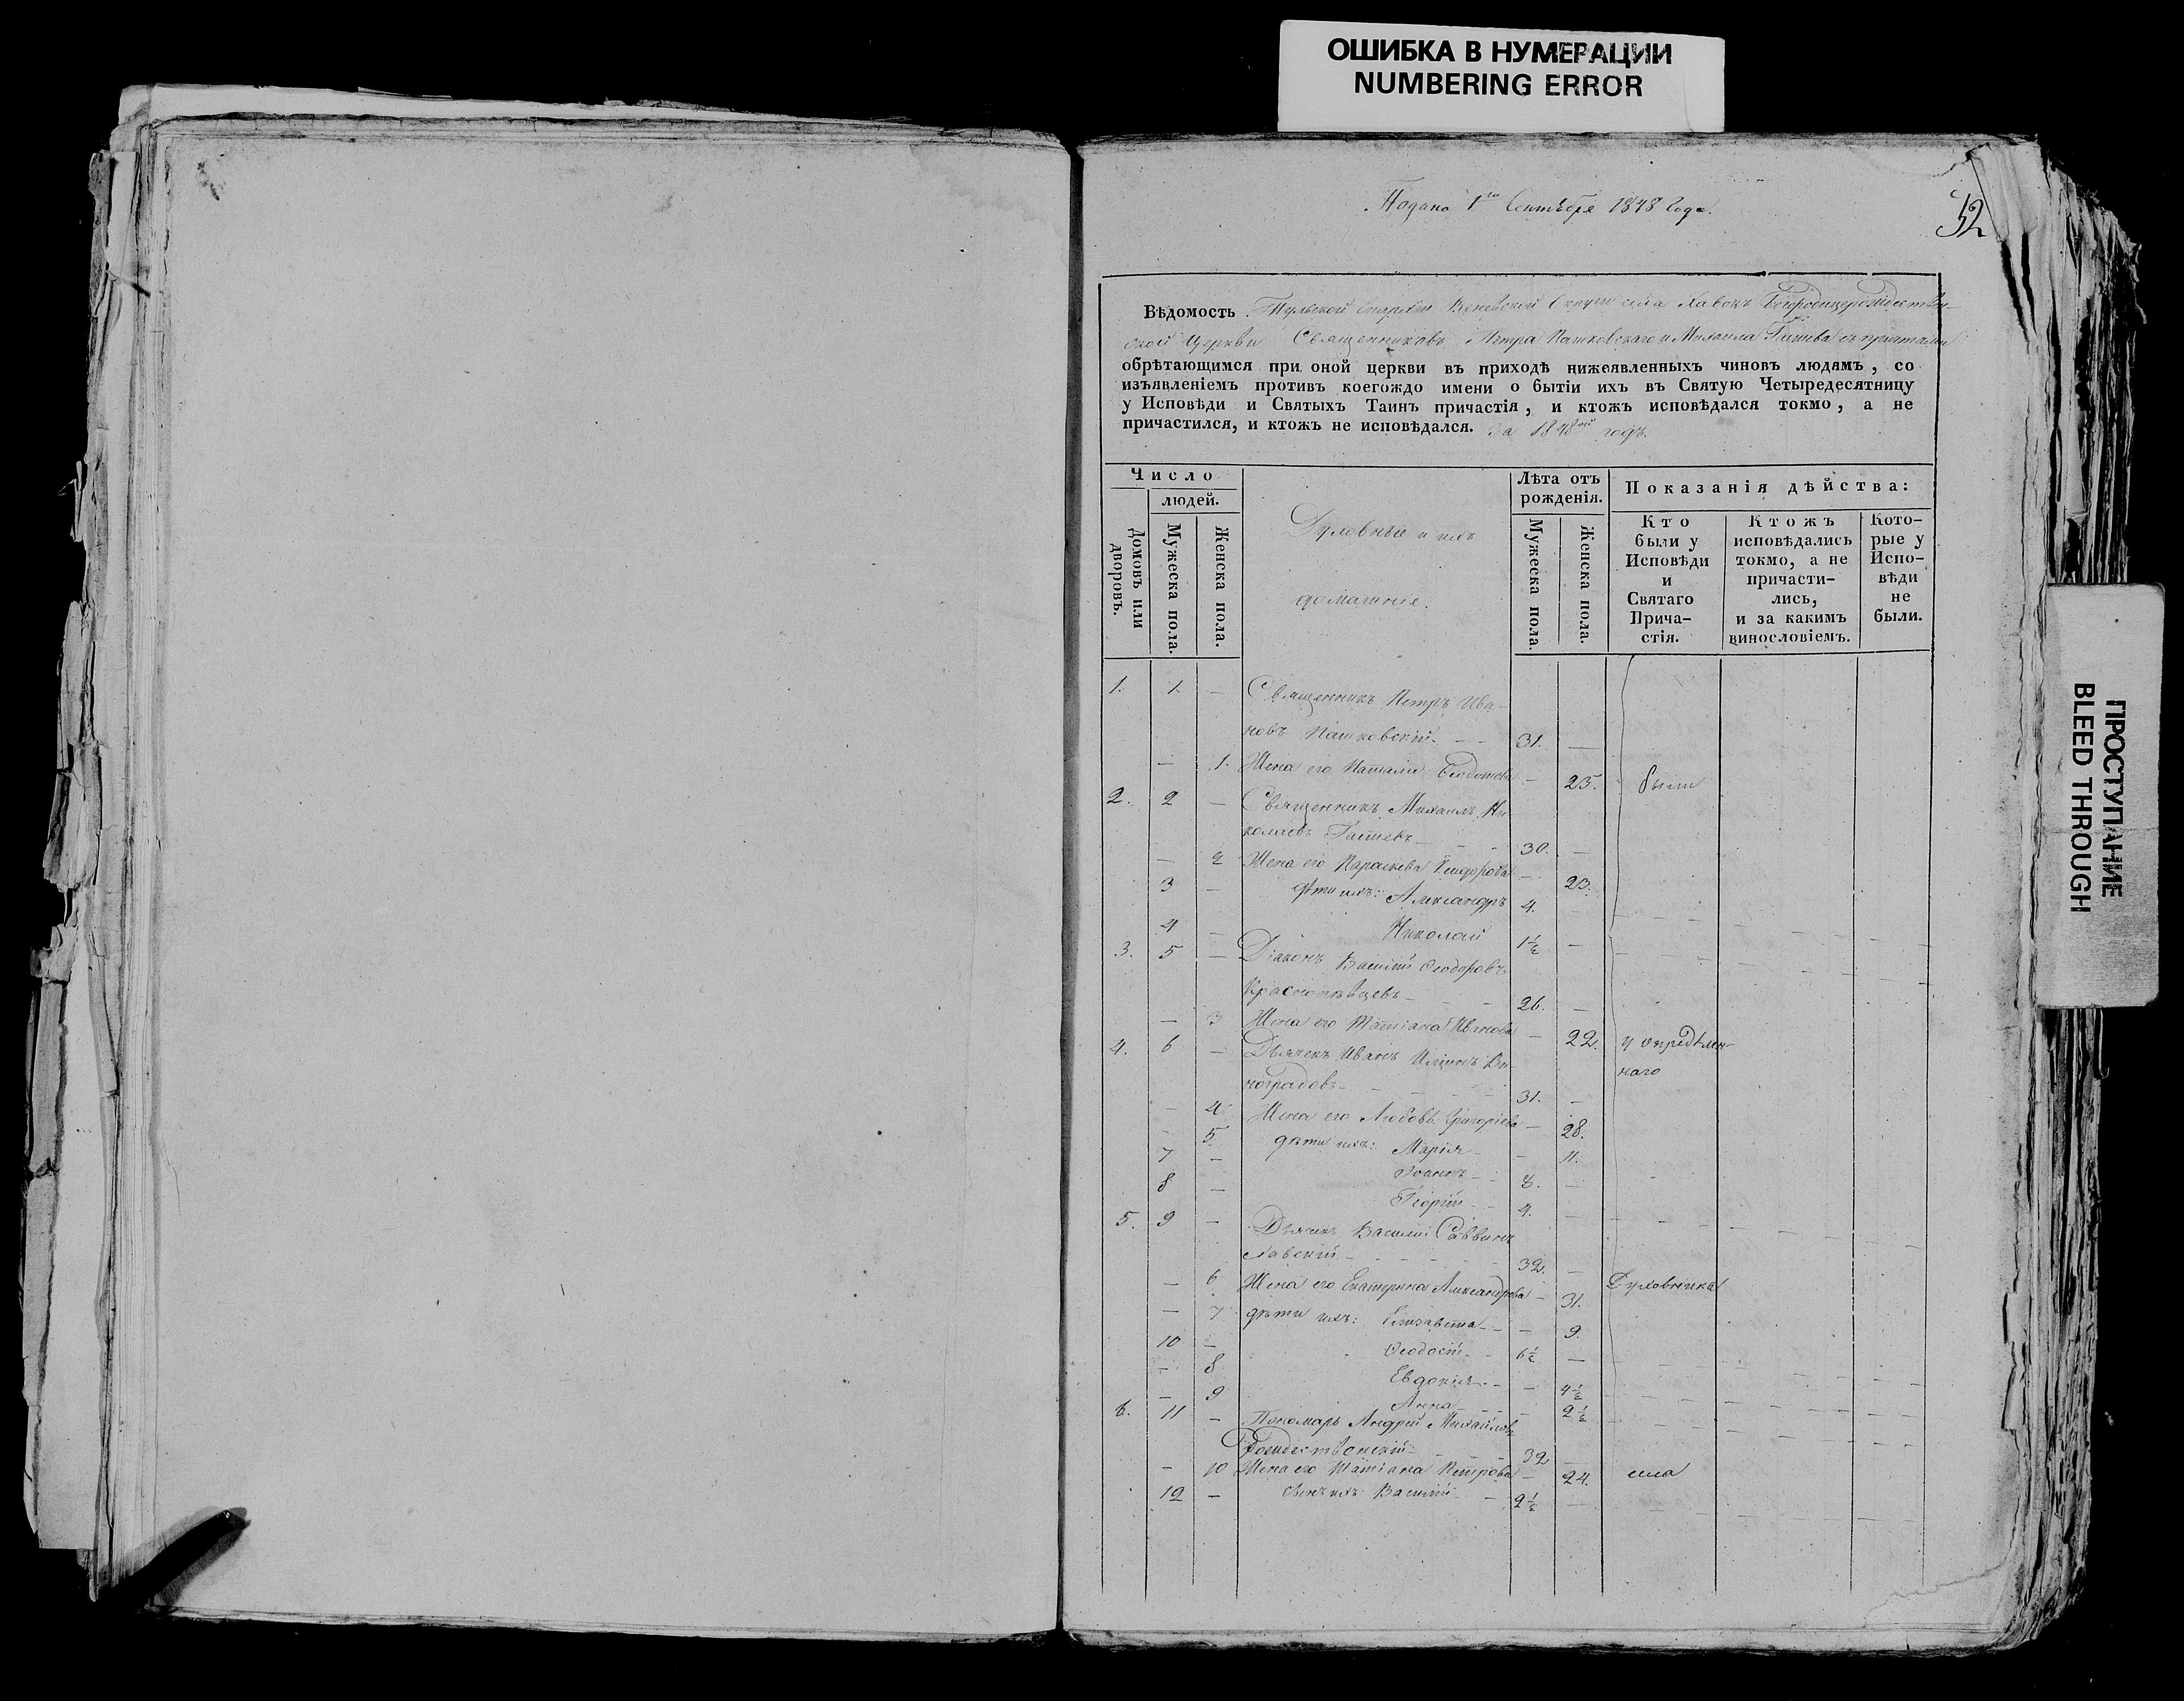 ОШИБКА В НУМЕРАЦИИ
NUMBERING ERROR
Подано 1го Сентября 1848 года.
52
Вѣдомость Тульской Епархіи Веневской Округи села Хавокъ Богородицерождествен-
ской Церкви Священниковъ Петра Пашковскаго и Михаила Гастева съ причтами
обрѣтающимся при оной церкви въ приходѣ нижеявленныхъ чиновъ людямъ, со
изъявленіемъ противъ коегождо имени о бытіи ихъ въ Святую Четыредесятницу
у Исповѣди и Святыхъ Таинъ причастія, и ктожъ исповѣдался токмо, а не
причастился, и ктожъ не исповѣдался. За 1848ой годъ.
Число
людей.
Домовъ или дворовъ.
Мужеска пола.
Женска пола.
Духовныя и ихъ
домашніе.
Лѣта отъ рожденія.
Мужеска пола.
Женска пола.
Показанія дѣйства:
Кто были у Исповѣди и Святаго Прича-стія.
Ктожъ исповѣдались токмо, а не причасти-лись, и за какимъ винословіемъ.
Кото-рые у Испо-вѣди не были.
1. 1. — Священникъ Петръ Ива-
новъ Пашковскій — — 31. —
— 1. Жена его Наталія — 25. были
2. 2 — Священникъ Михаилъ Ни-
колаевъ Гастевъ — — 30. —
— 2 Жена его Параскева — 23.
3 — дѣти ихъ: Александръ 4. —
4 — Николай 1½ —
3. 5 — Діаконъ Василій Ѳеодоровъ
Краснопѣвцевъ — — 26. —
— 3 Жена его Татіана Иванова — 22. у опредѣлен-
наго
4. 6 — Дьячекъ Иванъ Ви-
ноградовъ — — 31. —
— 4 Жена его Любовь Григоріева — 28.
— 5. дѣти ихъ: Марія — — 11.
7 — Іоаннъ — 8. —
8 — Георгій — 4. —
5. 9 — Дьячекъ Василій Саввинъ
Хавскій — — 32. —
— 6 Жена его Екатерина Александрова — 31. Духовника
— 7 дѣти ихъ: Елизавета — — 9.
10 — Ѳеодосій — 6½ —
— 8 Евдокія — — 4½
— 9 Анна — — 2½
6. 11 — Пономарь Андрей Михайловъ
Рождественскій — — 32 —
— 10 Жена его Татіана Петрова — 24. села
12 — сынъ ихъ Василій — 2½ —
ПРОСТУПАНИЕ
BLEED THROUGH